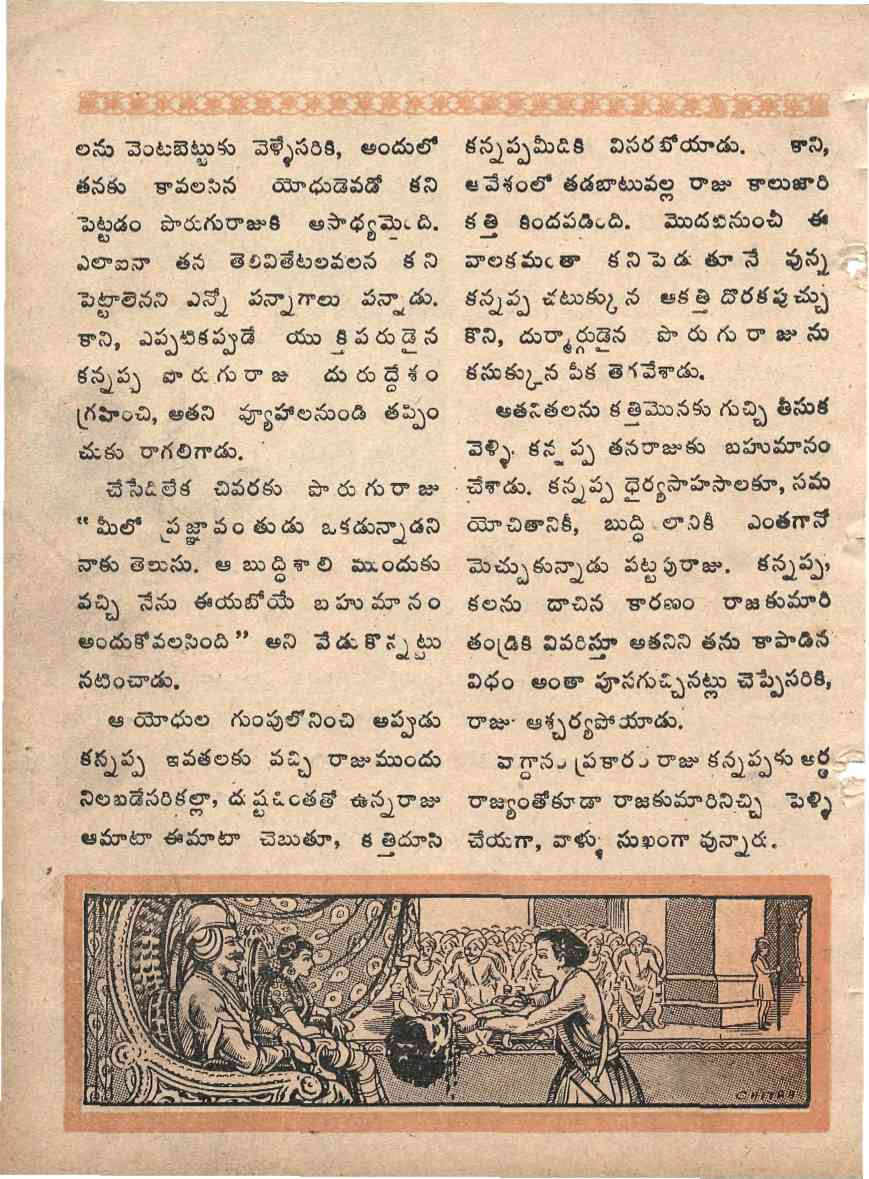 లను వెంటబెట్టుకు వెళ్ళేసరికి, అందులో
తనకు కావలసిన యోధుడెవడో కని
పెట్టడం పొరుగురాజుకి అసాధ్యమైంది.
ఎలాఐనా తన తెలివితేటలవలన కని
పెట్టాలెనని ఎన్నో పన్నాగాలు పన్నాడు.
కాని, ఎప్పటికప్పుడే యుక్తిపరుడైన
కన్నప్ప పొరుగురాజు దురుద్దేశం
గ్రహించి, అతని వ్యూహాలనుండి తప్పిం
చుకు రాగలిగాడు.
చేసేదిలేక చివరకు పొరుగురాజు
“మీలో ప్రజ్ఞావంతుడు ఒకడున్నాడని
నాకు తెలుసు. ఆ బుద్ధిశాలి ముందుకు
వచ్చి నేను ఈయబోయే బహుమానం
అందుకోవలసింది” అని వేడుకొన్నట్టు
నటించాడు.
ఆ యోధుల గుంపులోనించి అప్పుడు
కన్నప్ప ఇవతలకు వచ్చి రాజుముందు
నిలబడేసరికల్లా, దుష్టచింతతో ఉన్నరాజు
ఆమాటా ఈమాటా చెబుతూ, కత్తిదూసి
కన్నప్పమీదికి విసరబోయాడు. కాని,
ఆవేశంలో తడబాటువల్ల రాజు కాలుజారి
కత్తి కిందపడింది. మొదటినుంచీ ఈ
వాలకమంతా కనిపెడుతూనే వున్న
కన్నప్ప చటుక్కున ఆకత్తి దొరకపుచ్చు
కొని, దుర్మార్గుడైన పొరుగురాజును
కసుక్కున పీక తెగవేశాడు.
అతనితలను కత్తిమొనకు గుచ్చి తీసుక
వెళ్ళి, కన్నప్ప తనరాజుకు బహుమానం
చేశాడు. కన్నప్ప ధైర్యసాహసాలకూ, సమ
యోచితానికీ, బుద్ధిబలానికీ ఎంతగానో
మెచ్చుకున్నాడు పట్టపురాజు. కన్నప్ప,
కలను దాచిన కారణం రాజకుమారి
తండ్రికి వివరిస్తూ అతనిని తను కాపాడిన
విధం అంతా పూసగుచ్చినట్లు చెప్పేసరికి,
రాజు ఆశ్చర్యపోయాడు.
వాగ్దానం ప్రకారం రాజు కన్నప్పకు అర్ధ
రాజ్యంతోకూడా రాజకుమారినిచ్చి పెళ్ళి
చేయగా, వాళ్ళు సుఖంగా వున్నారు.
CHITRA